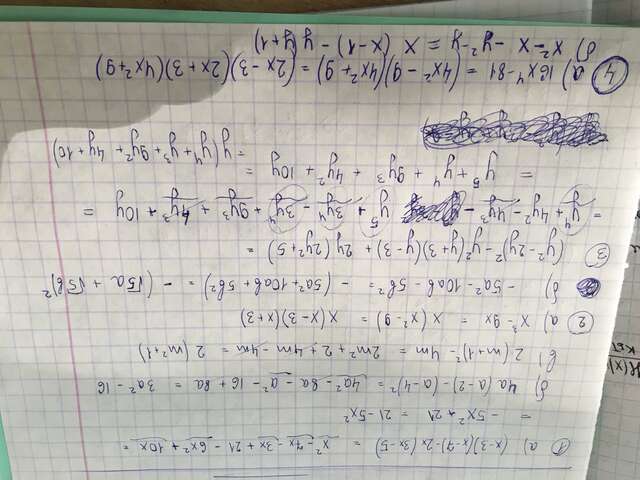 ① а) (x-3)(x-7)-2x(3x-5) = x² - 7x - 3x + 21 - 6x² + 10x =
= -5x² + 21 = 21 - 5x²
б) 4a(a-2) - (a-4)² = 4a² - 8a - a² - 16 + 8a = 3a² - 16
в) 2(m+1)² - 4m = 2m² + 2 + 4m - 4m = 2(m²+1)
② а) x³ - 9x = x(x²-9) = x(x-3)(x+3)
б) -5a² - 10ab - 5b² = -(5a² + 10ab + 5b²) = -(√5a + √5b)²
③ (y²-2y)² - y²(y+3)(y-3) + 2y(2y²+5) =
= y⁴ + 4y² - 4y³ - y⁵ + 3y⁴ - 3y⁴ + 9y³ + 4y³ + 10y =
= y⁵ + y⁴ + 9y³ + 4y² + 10y =
= y(y⁴ + y³ + 9y² + 4y + 10)
④ а) 16x⁴ - 81 = (4x² - 9)(4x² + 9) = (2x - 3)(2x + 3)(4x² + 9)
б) x² - x - y² - y = x(x - 1) - y(y + 1)